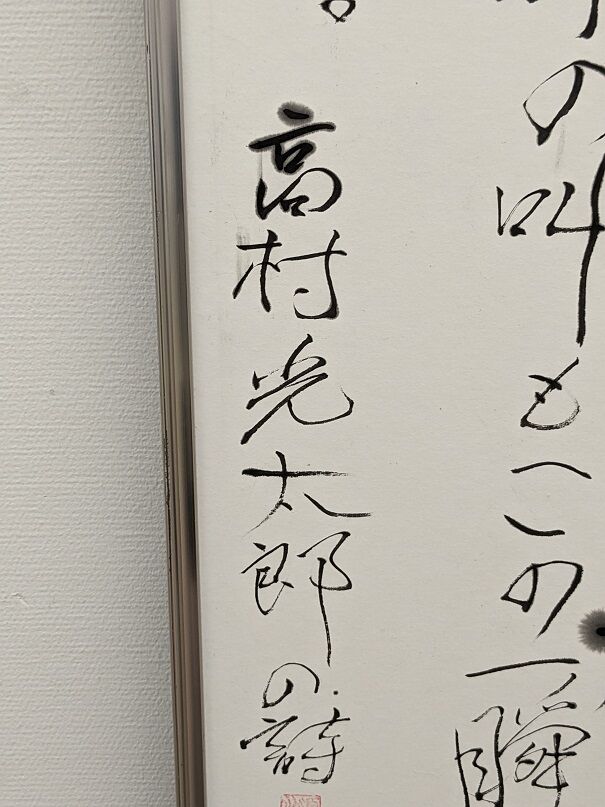 の叫もこの一瞬
高村光太郎の詩